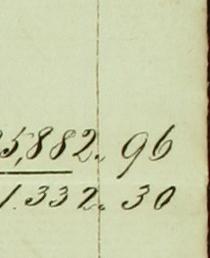 5,882. 96
1.332. 30